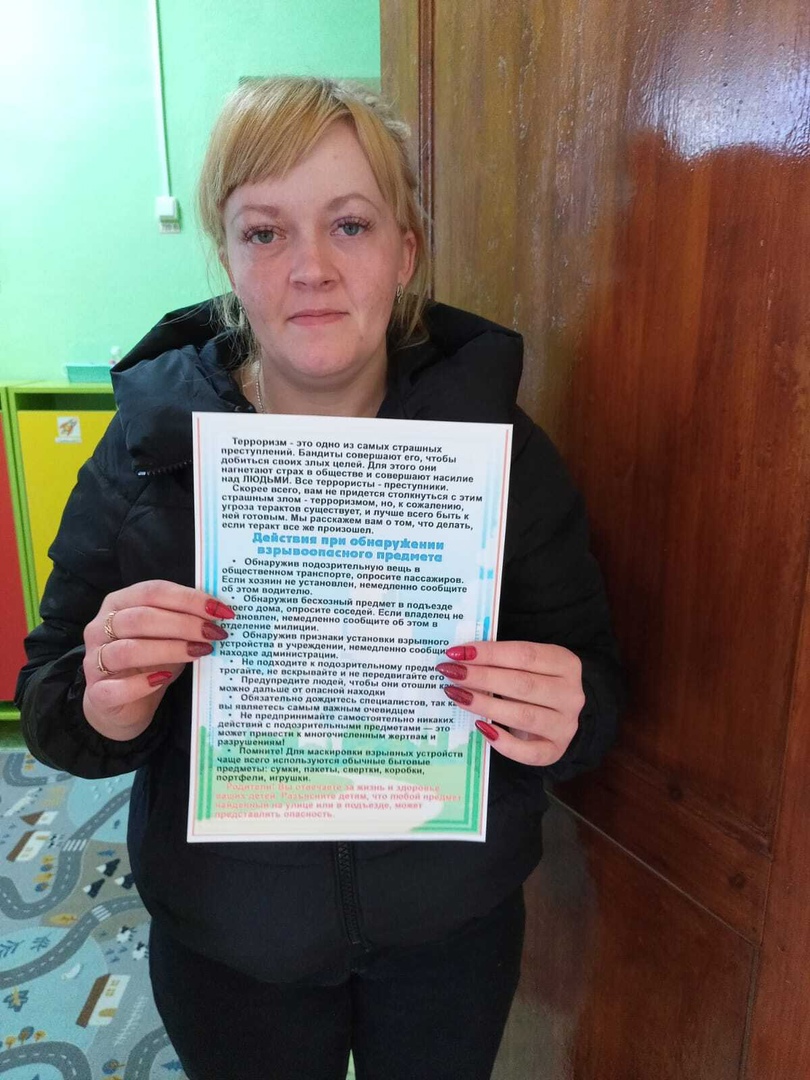 Терроризм - это одно из самых страшных
преступлений. Бандиты совершают его, чтобы
добиться своих злых целей. Для этого они
нагнетают страх в обществе и совершают насилие
над ЛЮДЬМИ. Все террористы - преступники.
Скорее всего, вам не придется столкнуться с этим
страшным злом - терроризмом, но, к сожалению,
угроза терактов существует, и лучше всего быть к
ней готовым. Мы расскажем вам о том, что делать,
если теракт все же произошел.
Действия при обнаружении
взрывоопасного предмета
• Обнаружив подозрительную вещь в
общественном транспорте, опросите пассажиров.
Если хозяин не установлен, немедленно сообщите
об этом водителю.
• Обнаружив бесхозный предмет в подъезде
своего дома, опросите соседей. Если владелец не
установлен, немедленно сообщите об этом в
отделение милиции.
• Обнаружив признаки установки взрывного
устройства в учреждении, немедленно сообщи
находке администрации.
• Не подходите к подозрительному предм
трогайте, не вскрывайте и не передвигайте его
• Предупредите людей, чтобы они отошли как
можно дальше от опасной находки
• Обязательно дождитесь специалистов, так к
вы являетесь самым важным очевидцем
• Не предпринимайте самостоятельно никаких
действий с подозрительными предметами — это
может привести к многочисленным жертвам и
разрушениям!
• Помните! Для маскировки взрывных устройств
чаще всего используются обычные бытовые
предметы: сумки, пакеты, свертки, коробки,
портфели, игрушки.
Родители! Вы отвечаете за жизнь и здоровье
ваших детей. Разъясните детям, что любой предмет
найденный на улице или в подъезде, может
представлять опасность.